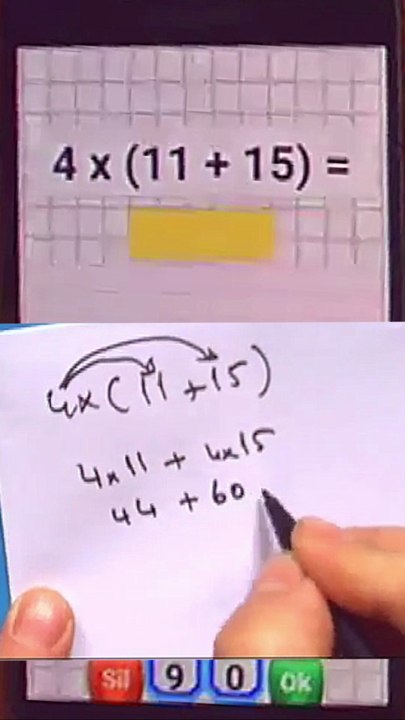 4 x (11 + 15) =
4x(11+15)
4x11 + 4x15
44 + 60
Sil 9 0 Ok